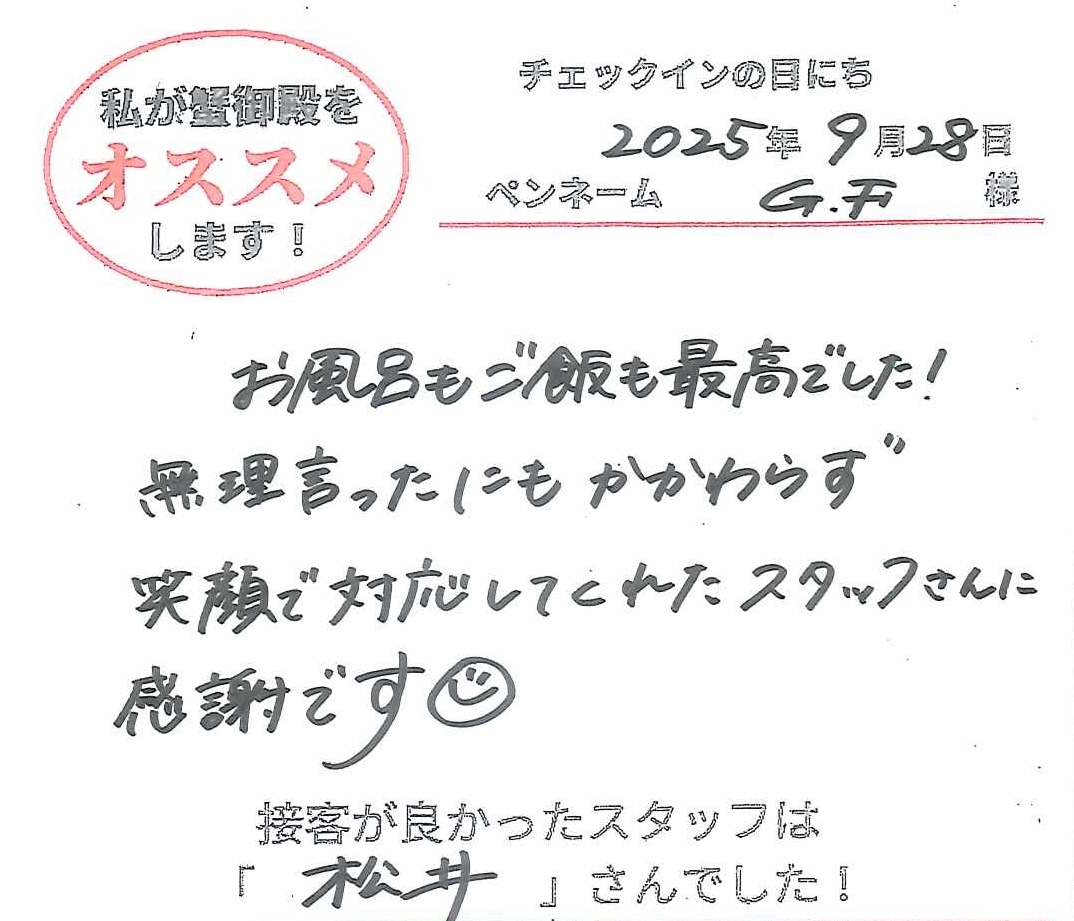 私が蟹御殿を
オススメ
します！
チェックインの日にち
2025年 9月28日
ペンネーム G.F 様
お風呂もご飯も最高でした！
無理言ったにもかかわらず
笑顔で対応してくれたスタッフさんに
感謝です
接客が良かったスタッフは
「 松井 」さんでした！